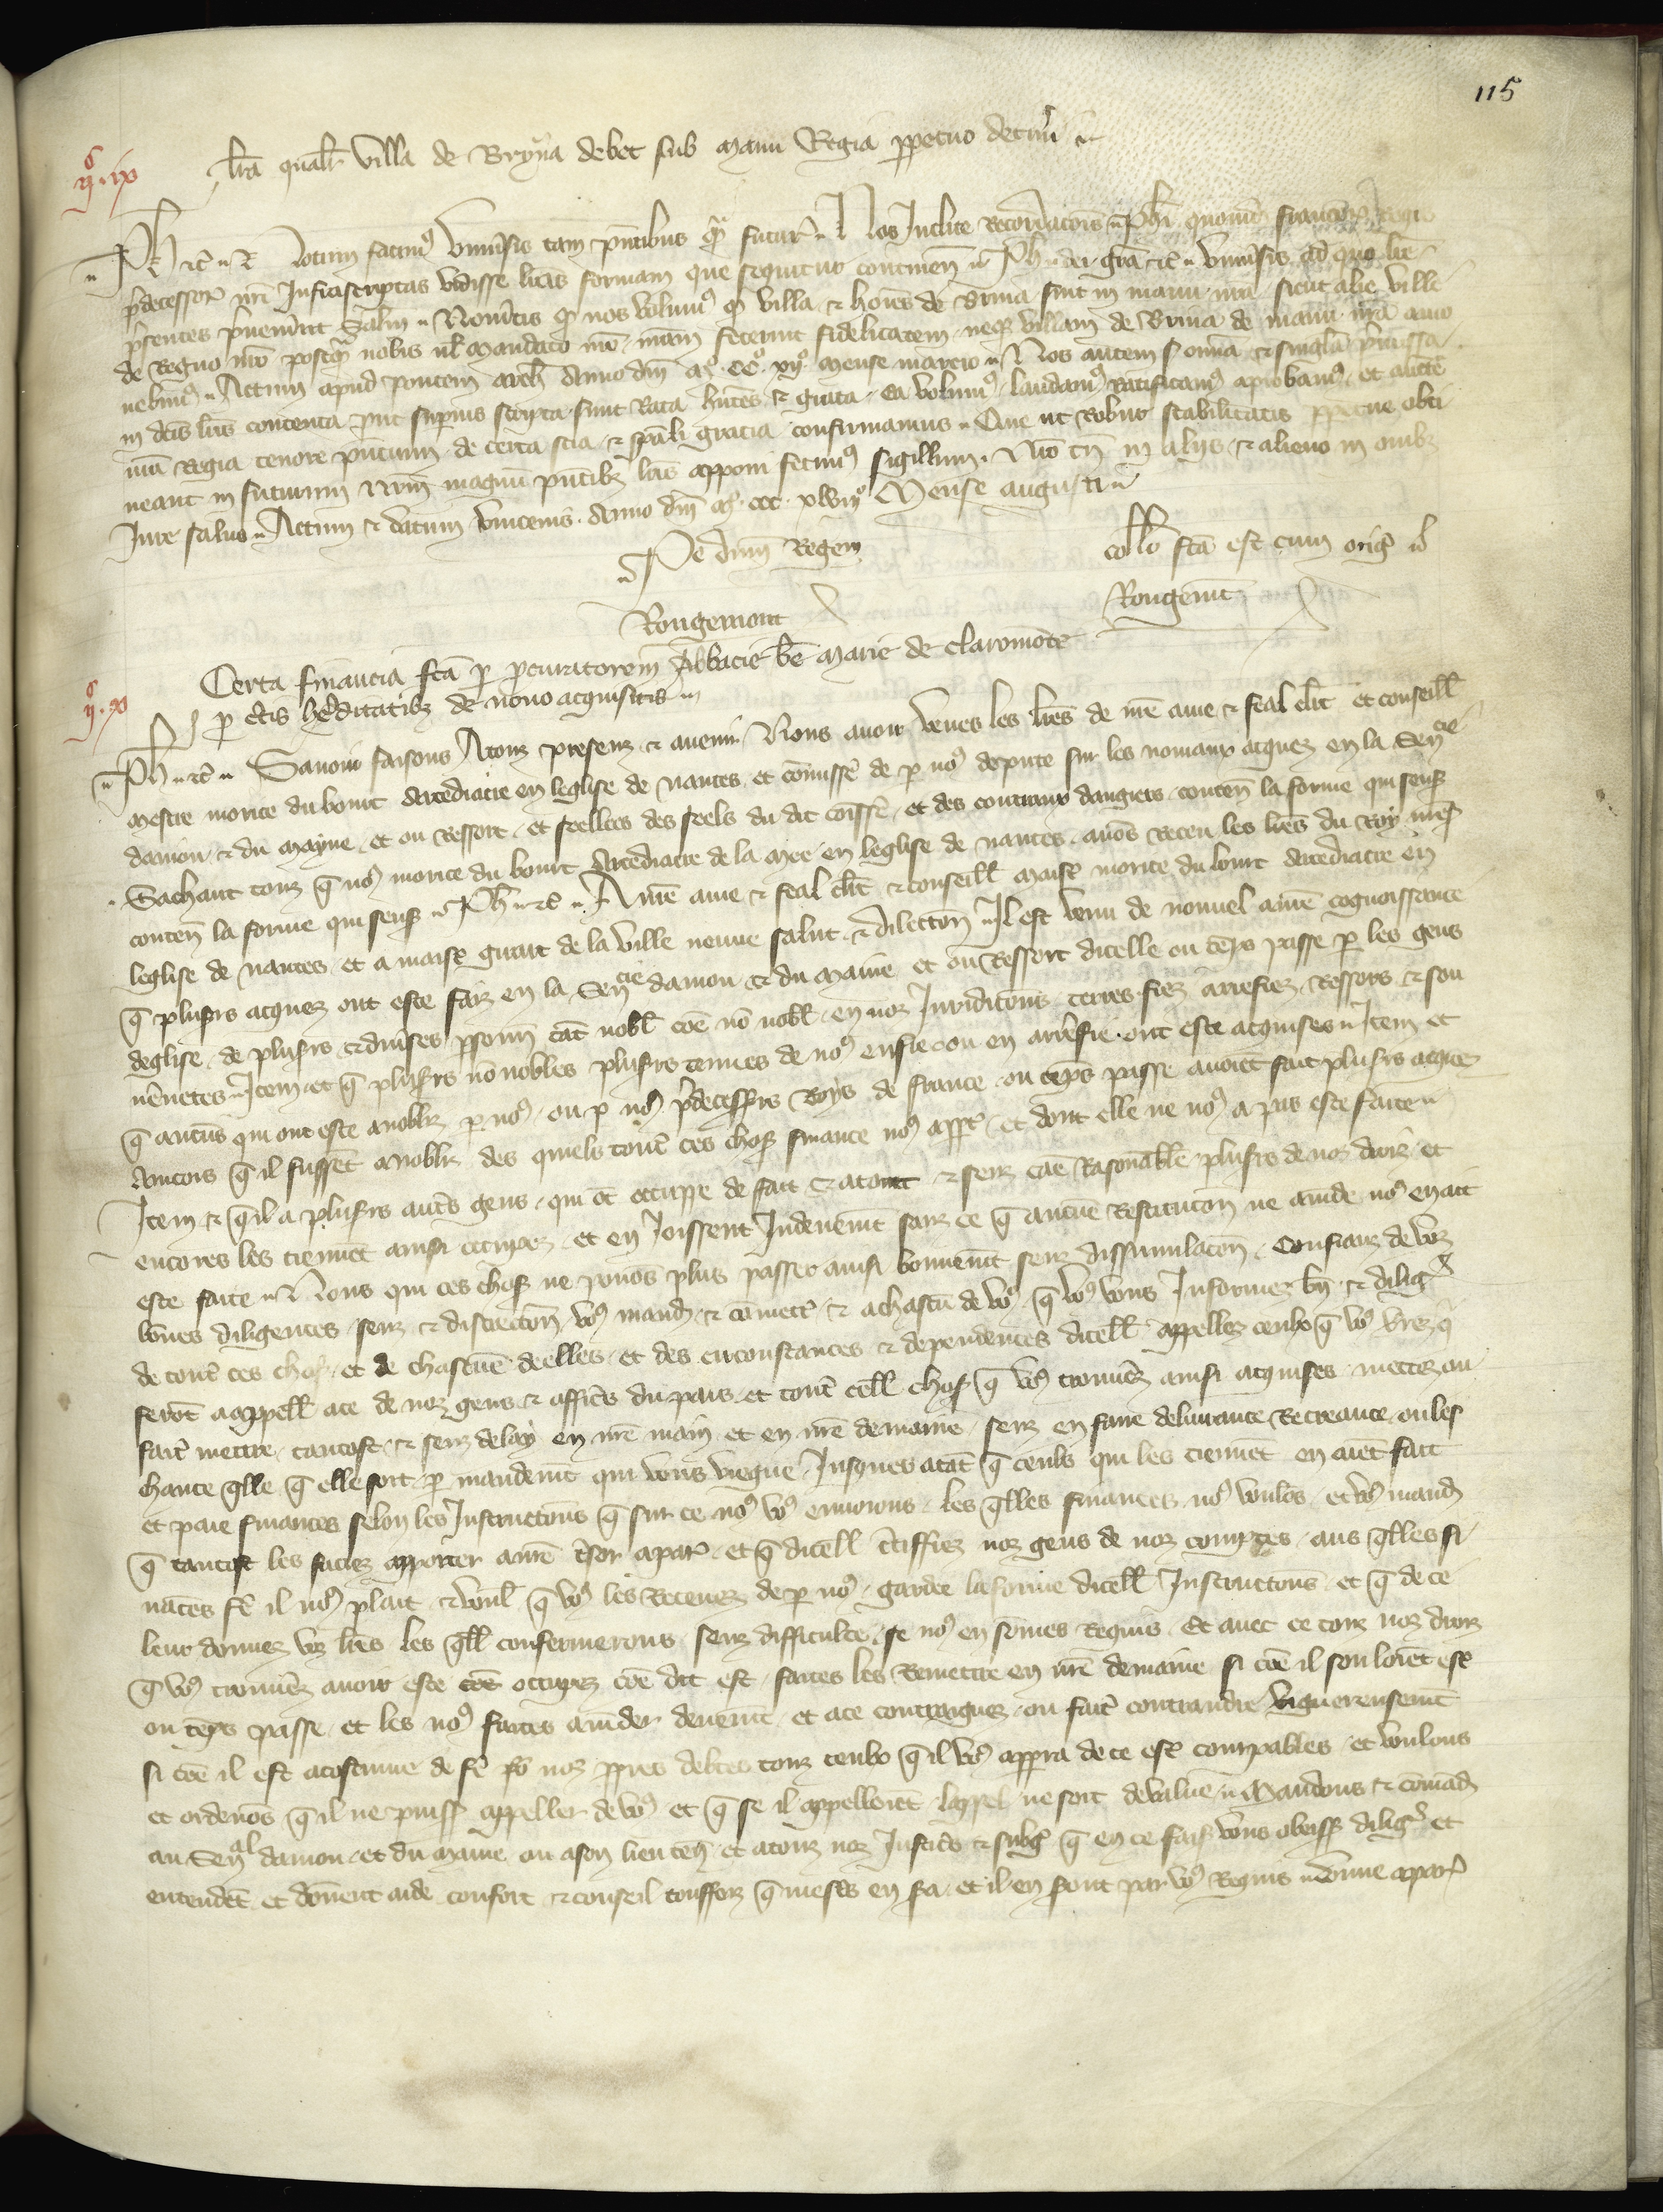 115
IIc. ix
lra qualr villa de Bryna debet sub manu Regia ppetuo detineri
Ph etc. Notum facimus univsis tam pntibus qm futur Nos Inclite Recordacois Phi quondam francor Regis
pdecessor nri Infrascriptas vidisse lras formam que sequitur continen Ph dei gra etc univsis ad quos lre
psentes pvenerint salm Noveritis qd nos volumus qd villa et hoies de Brina sint in manu nra sicut alie ville
de Regno nro postqm nobis vl mandato nro nram fecerunt fidelitatem neqz villam de Brina de manu nra amo
vebimus Actum apud pontem arch Anno dni mo cco xijo mense marcio Nos autem omia et singula pmissa
in dcis lris contenta put supius scripta sunt Rata hntes et grata ea volumus laudamus ratificamus approbamus et aucte
nra Regia tenore pntium de certa scia et spali gracia confirmamus Que ut Robur stabilitatis ppetue obti
neant in futurum nrm magnum pntibz lris apponi fecimus sigillum Nro tn in aliis et alieno in omibz
Jure salvo Actum et datum vincenis Anno dni mo ccc xlviijo Mense augusti
Per dnm Regem
collo fca est cum orig
Rougemont
Rougemt
IIc. x
Certa financia fca p pcuratorem Abbacie be Marie de claromonte
p ctis hereditatibz de novo acquisitis
Ph etc Savoir faisons A touz presenz et avenir Nous avoir veues les lres de nre ame et feal clrc et conseill
mestre morice du bourt Arcediacre en leglise de nantes et comissre de p nos depute sur les nouviaux acquez en la Sencie
danjou et du mayne et ou Ressort et seellees des seels du dit comissre et des contraux dangiers conten la forme qui sensr
Sachent touz q nos morice du bourt Arcediacre de la mee en leglise de nantes avos Receu les lres du Roy nres
conten la forme qui sensr Ph etc A nre ame et feal clrc et conseill maistr morice du bourt Arcediacre en
leglise de nantes et a maistr giraut de la ville neuve salut et dilection Il est venu de nouvel a nre cognoissance
q plusrs acquez ont este faiz en la Sencie danjou et du maine et ou Ressort dicelle ou teps passe p les gens
deglise de plusrs et divses psonn tat nobl coe no nobl en noz Juridicons terres fiez arrefiez Ressors et sou
venetes Item et q plusrs no nobles plusrs tenues de nos en fie ou en arrefie ont este acquises Item et
q aucus qui ont este anobliz p nos ou p nos pdecessrs Roys de france ou teps passe avoiet fait plusrs acquez
Aincois q il fusset anobliz des quiels toutes ces choses finance nos appt et dont elle ne nos a pas este faite
Item et q il a plusrs autrs gens qui ot occuppe de fait et a tort et senz cae Rasonable plusrs de noz droiz et
encores les tienet ainsi occupez et en Joissent Indeuemt sanz ce q aucue Restitucon ne amde nos en ait
este faite Nous qui ces choses ne povos plus passer ainsi bonnemt senz dissimulacon Confianz de voz
bones diligences senz et discrecon vos mand et comett et a chascu de vos q vos vous Informez bn et diligt
de toutes ces choses et de chascue de elles et des circonstances et dependences dicell appellez ceulx q vos verrez q
serot a appell a ce de noz gens et offices du pais et toutes cell choses q vos trouvez ainsi acquises mettez ou
fait mettre tantost et senz delay en nre main et en nre demaine senz en faire delivrance Recreance ou les
chante qlle q elle soit p mandemt qui vous viegne Jusques a tat q ceuls qui les tienet en aiet fait
et paie finances selon les Instructions q sur ce nos vos envoions les qlles finances nos voulos et vos mand
q tantost les faciez apporter a nre tsor a paris et q dicell ctiffiez noz gens de noz comptes aus qlles fi
nances fe il nos plait et voul q vos les Recevez de p nos gardee la forme dicell Instructions et q de ce
leur donnez voz lres les qll confermerons senz difficulte se nos en somes Requis Et avec ce touz noz droiz
q vos trouvez avoir este occupez coe dit est faites les Remettre en nre demaine si coe il souloiet estr
ou teps passe et les nos faites amder deuemt et a ce contraignez ou fait contraindre viguereusemt
si coe il est acostume de fe po noz ppres debtes touz ceulx q il vos apperra de ce estr coupables et voulons
et ordenos q il ne puiss appeller de vos et q se il appelloiet lappel ne soit de value Mandons et comad
au Senal danjou et du maine ou a son lieuten et a touz noz Justicrs et subgs q en ce faist vous obeiss diligt et
entendet et donent aide confort et conseil touteffoiz q mestrs en sra et il en sront par vos Requis donne a paris